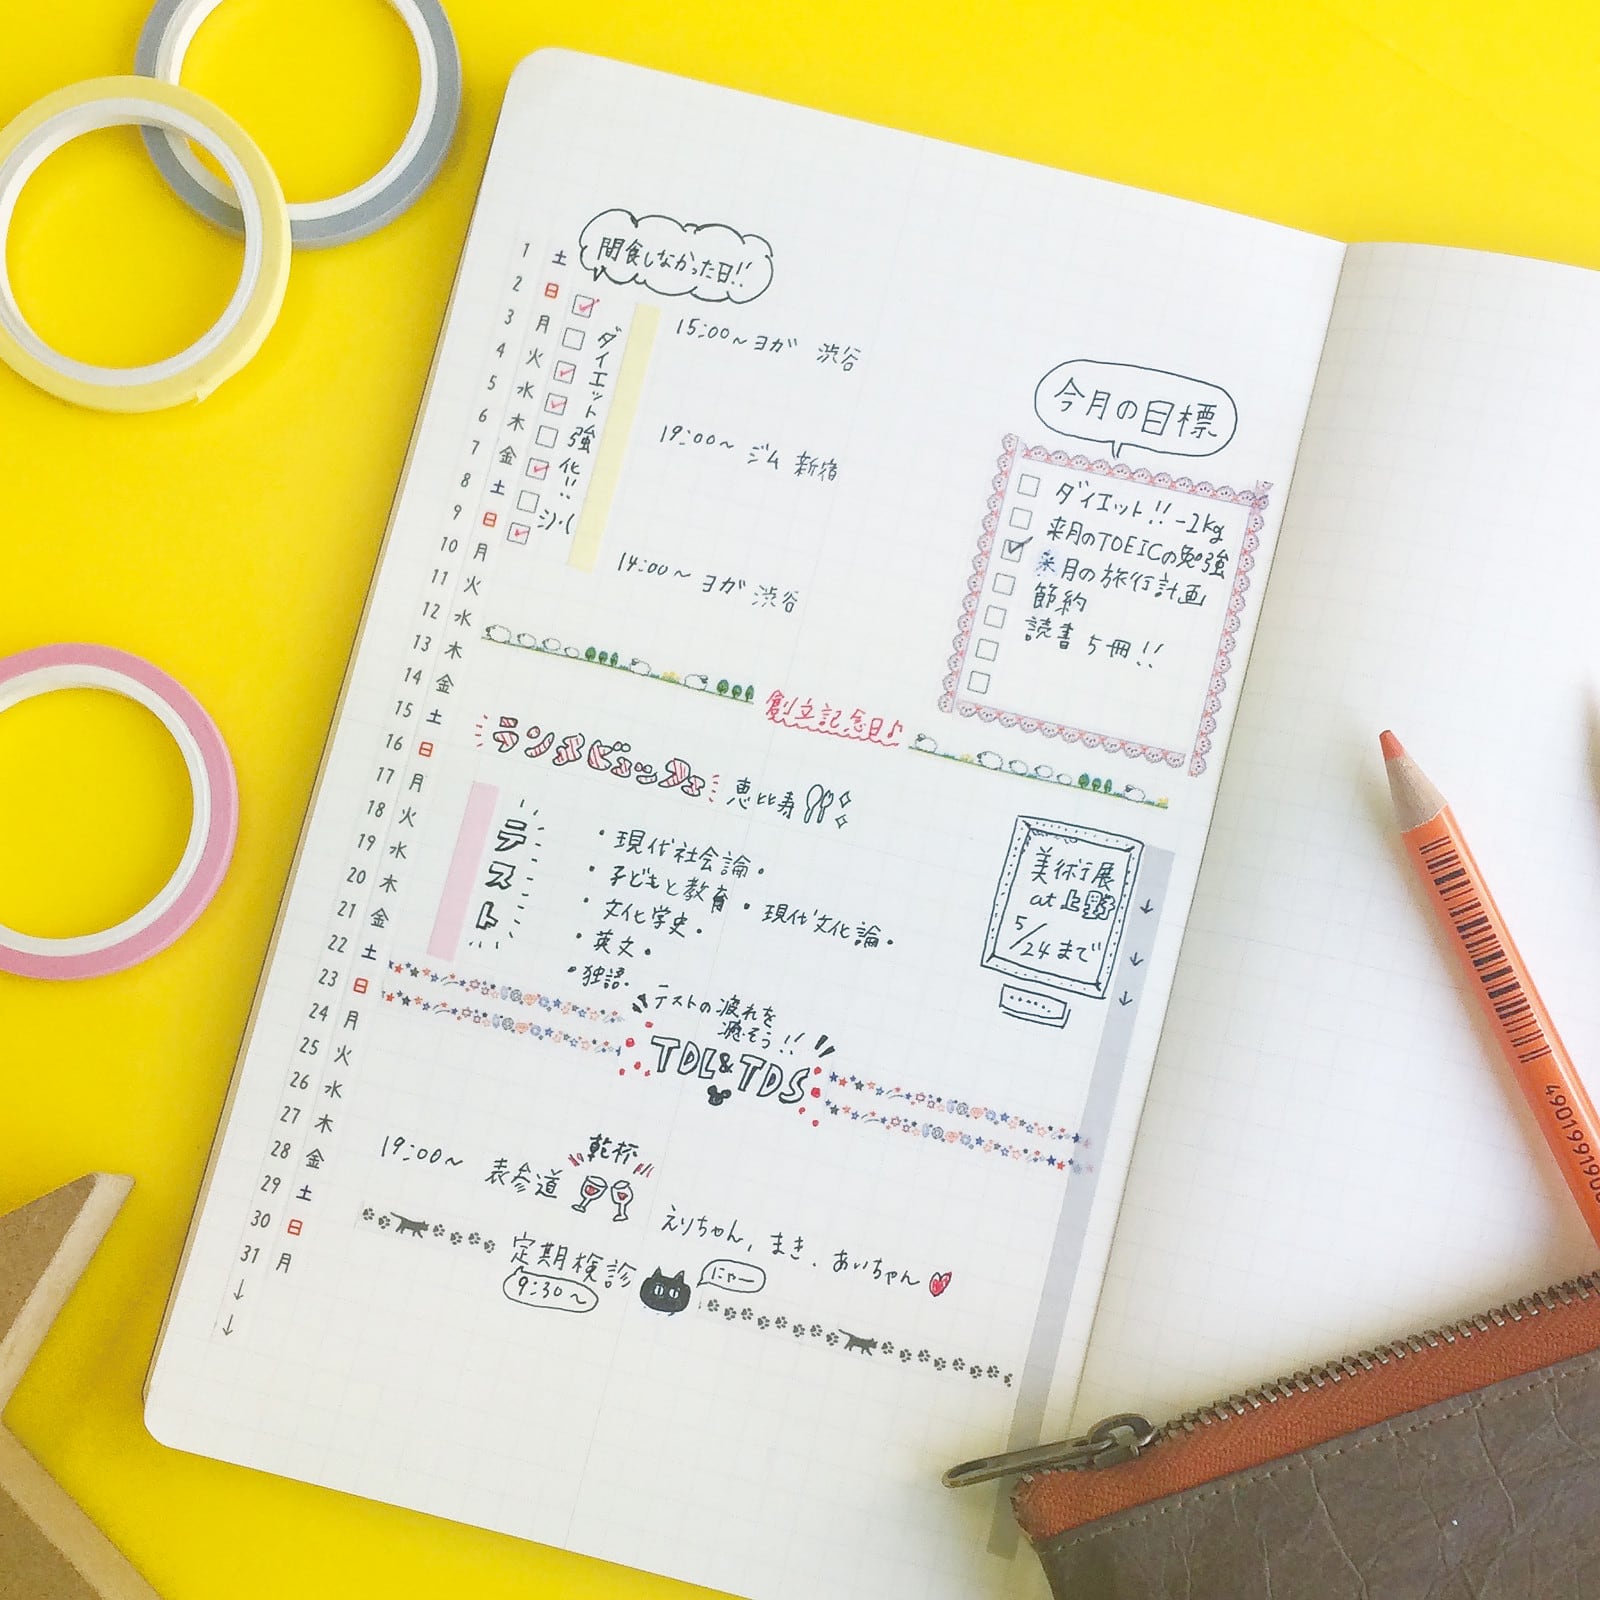 間食しなかった日!!
1 土
2 日
3 月
4 火
5 水
6 木
7 金
8 土
9 日
10 月
11 火
12 水
13 木
14 金
15 土
16 日
17 月
18 火
19 水
20 木
21 金
22 土
23 日
24 月
25 火
26 水
27 木
28 金
29 土
30 日
31 月
↓
↓
ダイエット強化!!
15:00〜ヨガ 渋谷
19:00〜 ジム 新宿
14:00〜ヨガ 渋谷
今月の目標
ダイエット!! -2kg
来月のTOEICの勉強
来月の旅行計画
節約
読書 5冊!!
創立記念日♪
ランチビュッフェ 恵比寿
テスト
・現代社会論・
・子どもと教育・現代文化論・
・文化学史・
・英文・
・独語・
美術展
at 上野
5/24まで
↓
↓
↓
テストの疲れを
癒そう!!
TDL&TDS
19:00〜 表参道
乾杯
えりちゃん, まき, あいちゃん
定期検診
9:30〜
にゃー